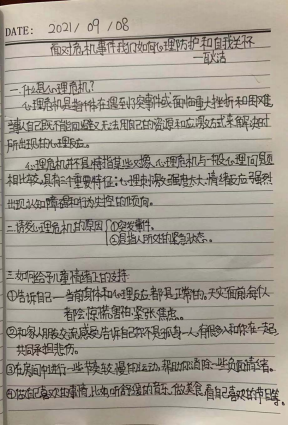 DATE: 2021/09/08
面对危机事件我们如何心理防护和自我关怀
一.什么是心理危机?
心理危机是指个体在遇到了突发事件或面临重大挫折和困难,
当事人自己既不能回避又无法用自己的资源和应激方式来解决时
所出现的心理反应。
心理危机并不是特指某些又
心理危机与一般心理问题
相比较,具有三个重要特征:心理刺激强度太大,情绪反应强烈
出现认知障碍和行为失控的倾向。
二.诱发心理危机的原因 ①突发事件。
②是指人所处的紧急状态。
三.如何给予儿童情绪上的支持
①告诉自己——当前身体和心理反应都是正常的。天灾面前,每个人
都会惊慌害怕、紧张焦虑。
②和家人朋友交流感受,告诉自己你不是孤身一人,有很多人和你在一起,
共同承担悲伤。
③在房间中进行一些节奏较慢的运动,帮助你消除一些负面情绪。
④做自己喜欢的事情,比如听舒缓的音乐、做美食,看自己喜欢的节目等。